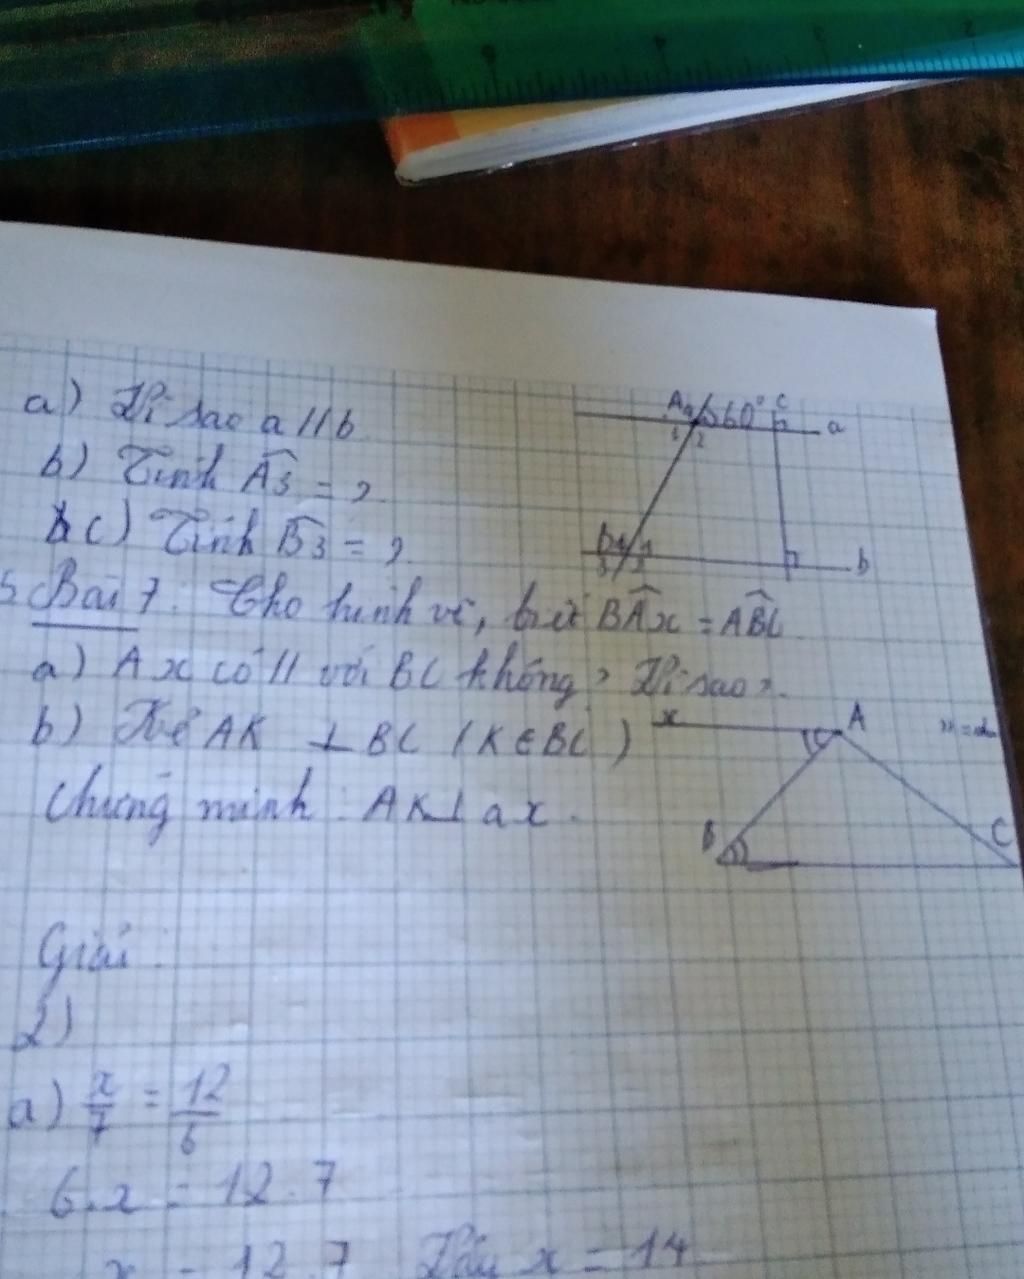 a) Vì sao a // b
b) Tính Â3 = ?
c) Tính B̂3 = ?
A4 3 60° C
1 2 a
B4 1
3 2 b
Bài 7: Cho hình vẽ, biết BÂx = AB̂C
a) Ax có // với BC không? Vì sao?
b) Kẻ AK ⊥ BC (K ∈ BC)
Chứng minh: AK ⊥ ax.
x A
B C
Giải:
2)
a) x/7 = 12/6
6.x = 12.7
x = 12.7 Vậy x = 14